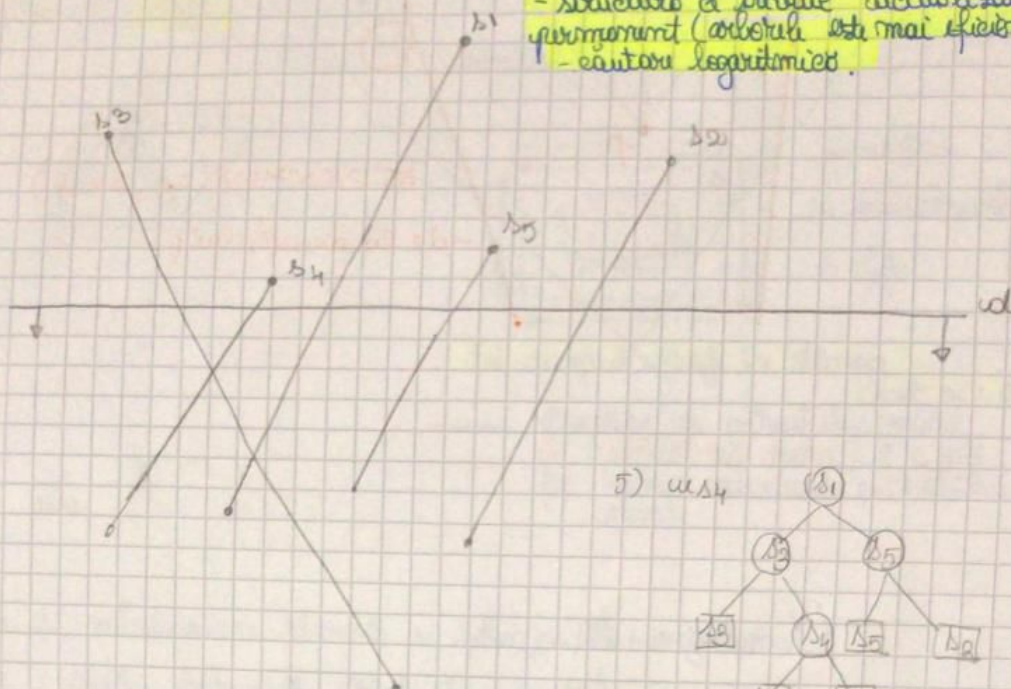 - structura
permanent (arborele este mai eficie
- căutare logaritmică.
s1
s3
s2
s5
s4
5) us s4
s1
s3 s5
s3 s4 s5 s2